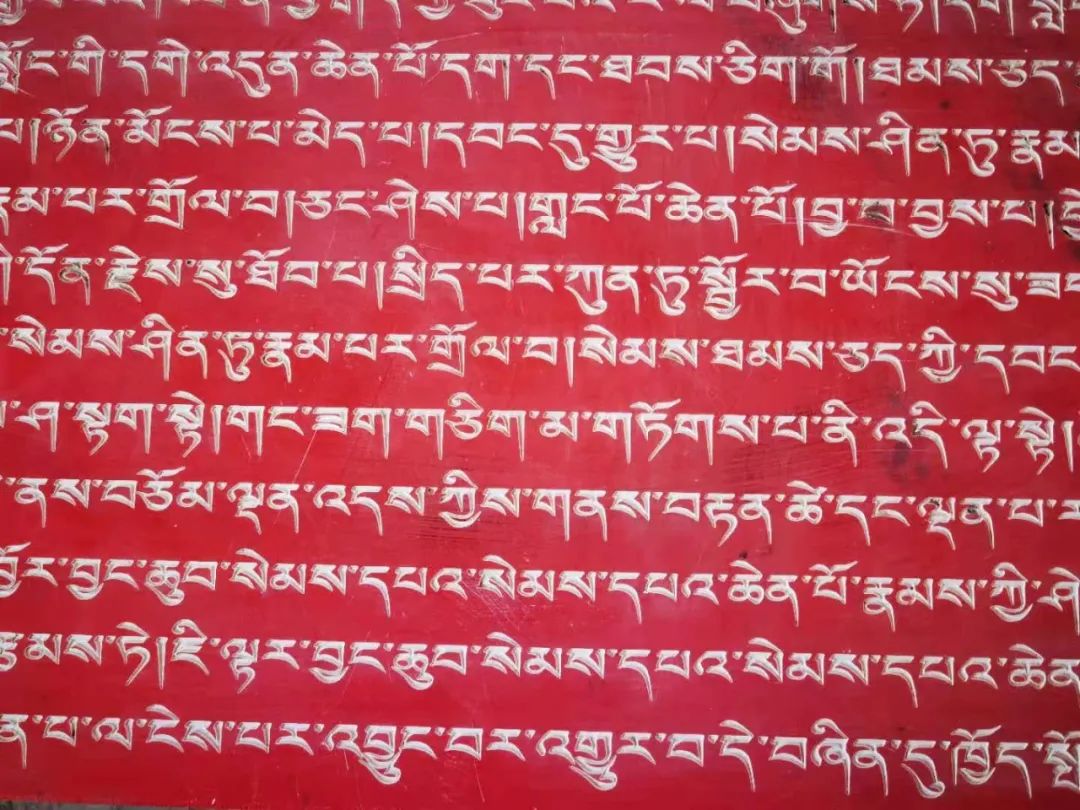 སློང་གི་དགེ་འདུན་ཆེན་པོ་དག་དང་ཐབས་ཅིག་གོ།ཐམས་ཅད་
པ།ཉོན་མོངས་པ་མེད་པ།དབང་དུ་གྱུར་པ།སེམས་ཤིན་ཏུ་རྣམ
རྣམ་པར་གྲོལ་བ།ཅང་ཤེས་པ།གླང་པོ་ཆེན་པོ།བྱ་བ་བྱས་པ།
དོན་རྗེས་སུ་ཐོབ་པ།སྲིད་པར་ཀུན་ཏུ་སྦྱོར་བ་ཡོངས་སུ་ཟད
སེམས་ཤིན་ཏུ་རྣམ་པར་གྲོལ་བ།སེམས་ཐམས་ཅད་ཀྱི་དབང
ཤ་སྟག་སྟེ།གང་ཟག་གཅིག་མ་གཏོགས་པ་ནི་འདི་ལྟ་སྟེ།
ནས་བཅོམ་ལྡན་འདས་ཀྱིས་གནས་བརྟན་ཚེ་དང་ལྡན་པ་ར
འབྱོར་བྱང་ཆུབ་སེམས་དཔའ་སེམས་དཔའ་ཆེན་པོ་རྣམས་ཀྱི་ཤ
བརྩམས་ཏེ།ཇི་ལྟར་བྱང་ཆུབ་སེམས་དཔའ་སེམས་དཔའ་ཆེན
ན་པ་ལ་ངེས་པར་འབྱུང་བར་འགྱུར་བ་དེ་བཞིན་དུ་ཁྱོད་སྤོ